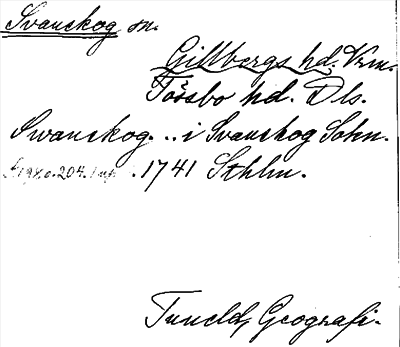 Svanskog sn.
Gillbergs hd. Vrm.
Tössbo hd. Dls.
Swanskog... i Svanskog Sokn.
1741 Sthlm.
Tuneld, Geografi.